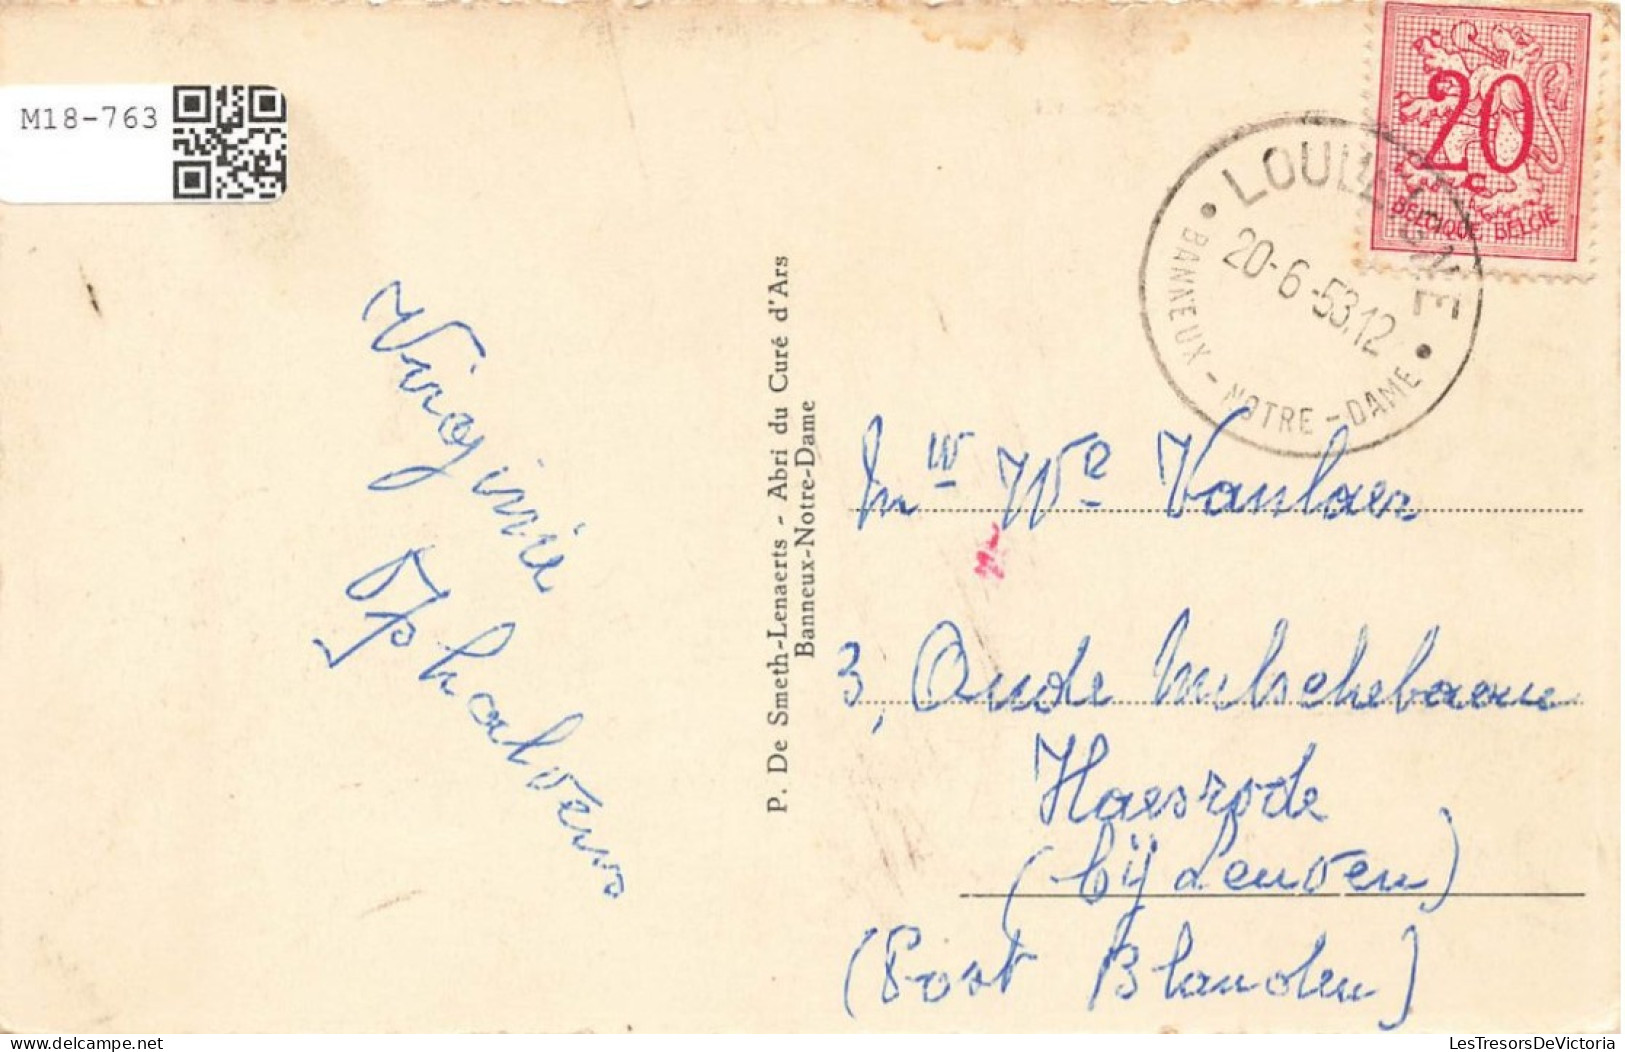 M18-763
20 c
BELGIQUE BELGIË
LOUVEIGNÉ
20-6-53.12
BANNEUX - NOTRE-DAME
Virginie
P. De Smeth-Lenaerts - Abri du Curé d'Ars
Banneux-Notre-Dame
Mw We Vanlaer
3, Oude
Haesrode
(bij Leuven)
(Post Blanden)
delcampe.net
LesTresorsDeVictoria